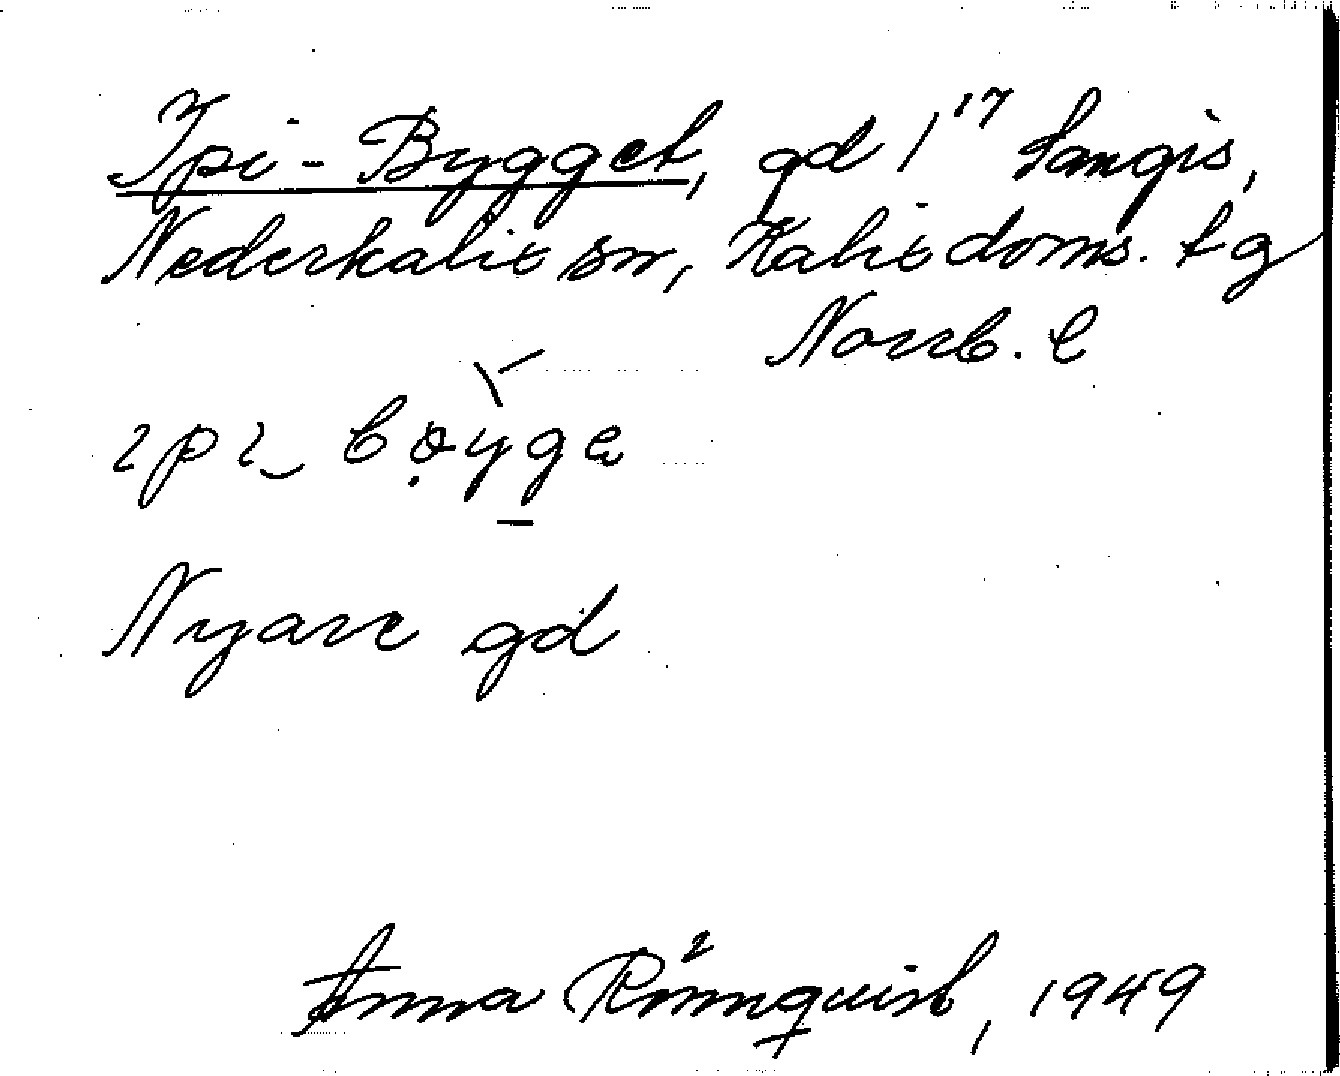 Ipi-Bygget, gd 1¹⁷ Sangis,
Nederkalix sn, Kalix doms. tg
Norrb. l
Nyare gd
Anna Rönnquist, 1949